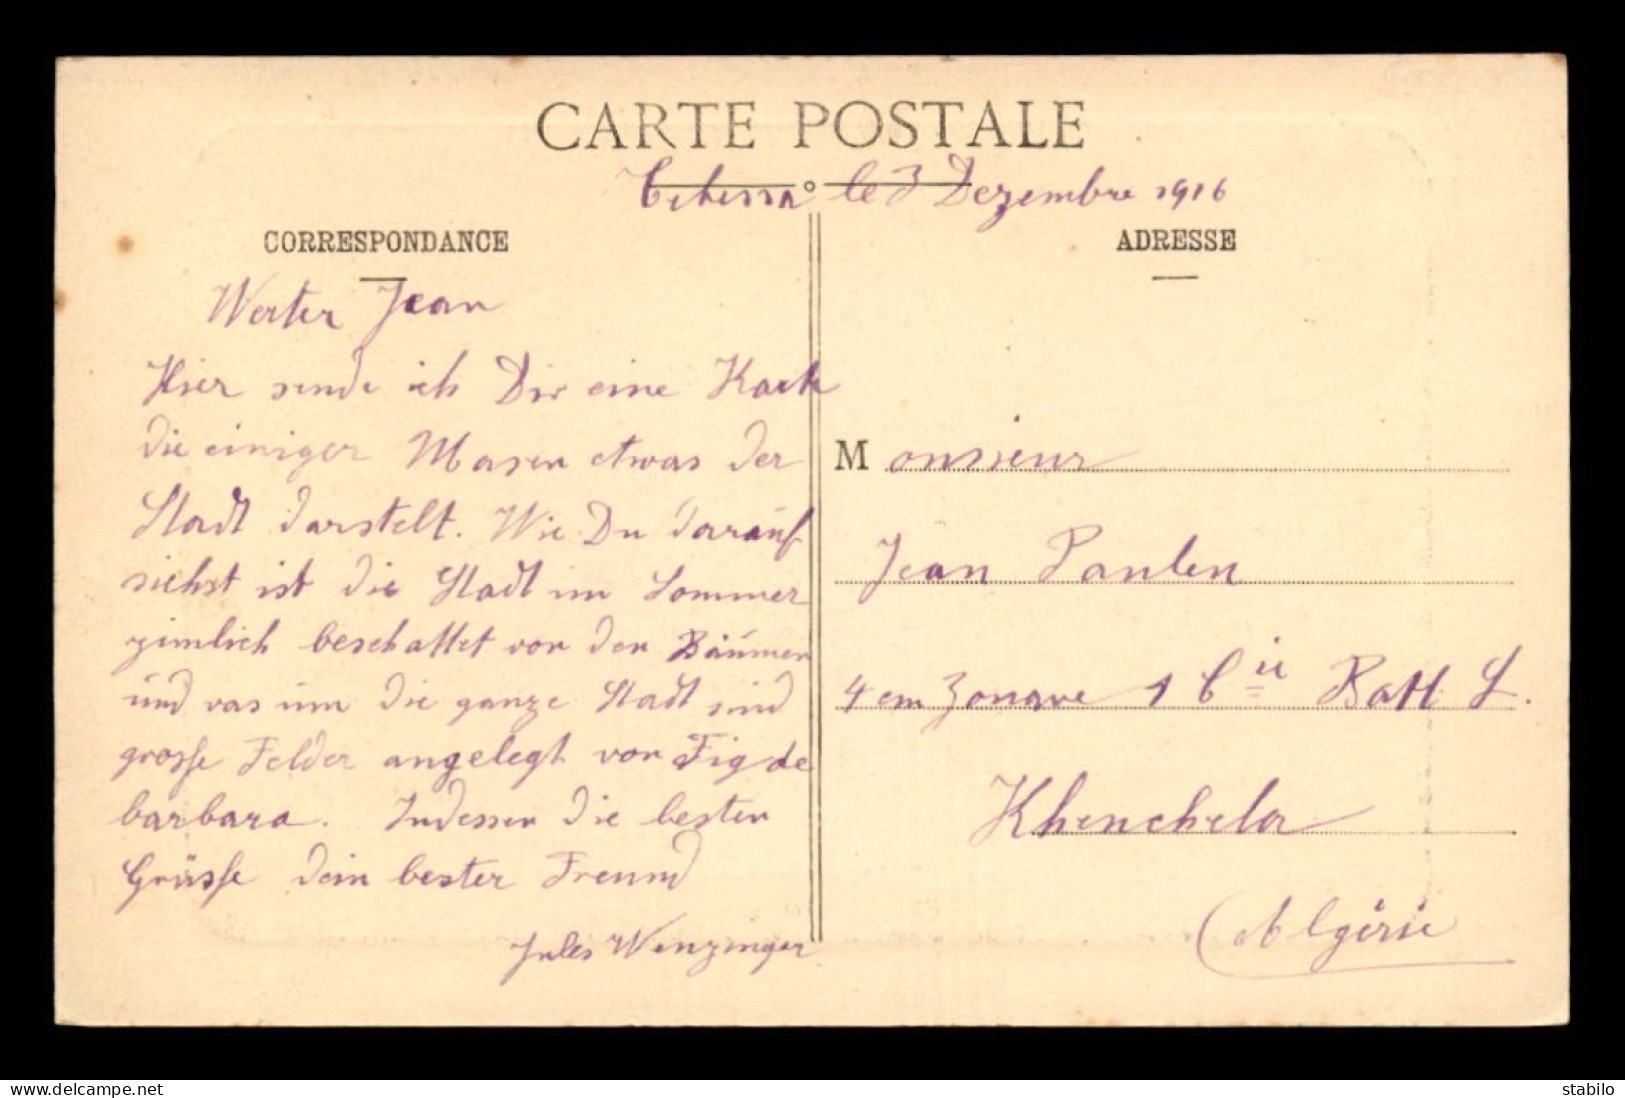 CARTE POSTALE
Tebessa le 3 Dezembre 1916
CORRESPONDANCE
Werter Jean
Hier sende ich Dir eine Karte
die einiger Masen etwas der
Stadt darstelt. Wie Du darauf
siehst ist die Stadt im Sommer
zimlich beschattet von den Bäumen
und vas um die ganze Stadt sind
grosse Felder angelegt von Fig de
barbara. Indessen die besten
Grüsse dein bester Freund
Jules Wenzinger
ADRESSE
Monsieur
Jean Paulen
4em Zouave 1 Cie Batt L.
Khenchela
(Algérie
stabilo